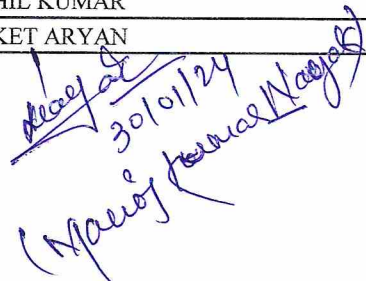 HIL KUMAR
KET ARYAN
Nayak
30/01/24
(Manoj Kumar Nayak)